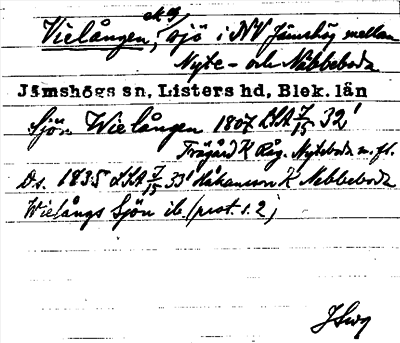 ek m
Vielången, sjö i NV Jämshög mellan
Nyte- och Nabbeboda
Jämshögs sn, Listers hd, Blek. län
Sjön Wielången 1807 LSA 7/15 32'
Frågård K Råg. Nyteboda m. fl.
D:s. 1835 LSA 7/15 33' Håkansson K Nabbeboda
Wielångs Sjön ib. (prot. s. 2)